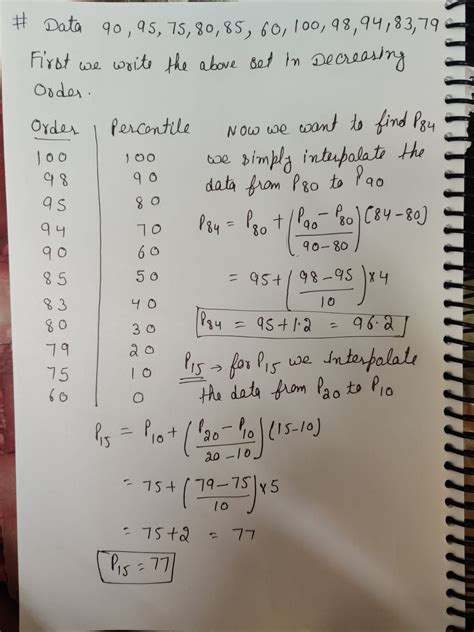 # Data 90, 95, 75, 80, 85, 60, 100, 98, 94, 83, 79
First we write the above set in Decreasing
Order.
Order | Percentile
100 | 100
98 | 90
95 | 80
94 | 70
90 | 60
85 | 50
83 | 40
80 | 30
79 | 20
75 | 10
60 | 0
Now we want to find P84
we simply interpolate the
data from P80 to P90
P84 = P80 + (P90 - P80 / 90 - 80) (84 - 80)
= 95 + (98 - 95 / 10) × 4
P84 = 95 + 1.2 = 96.2
P15 → for P15 we Interpolate
the data from P20 to P10
P15 = P10 + (P20 - P10 / 20 - 10) (15 - 10)
= 75 + (79 - 75 / 10) × 5
= 75 + 2 = 77
P15 = 77